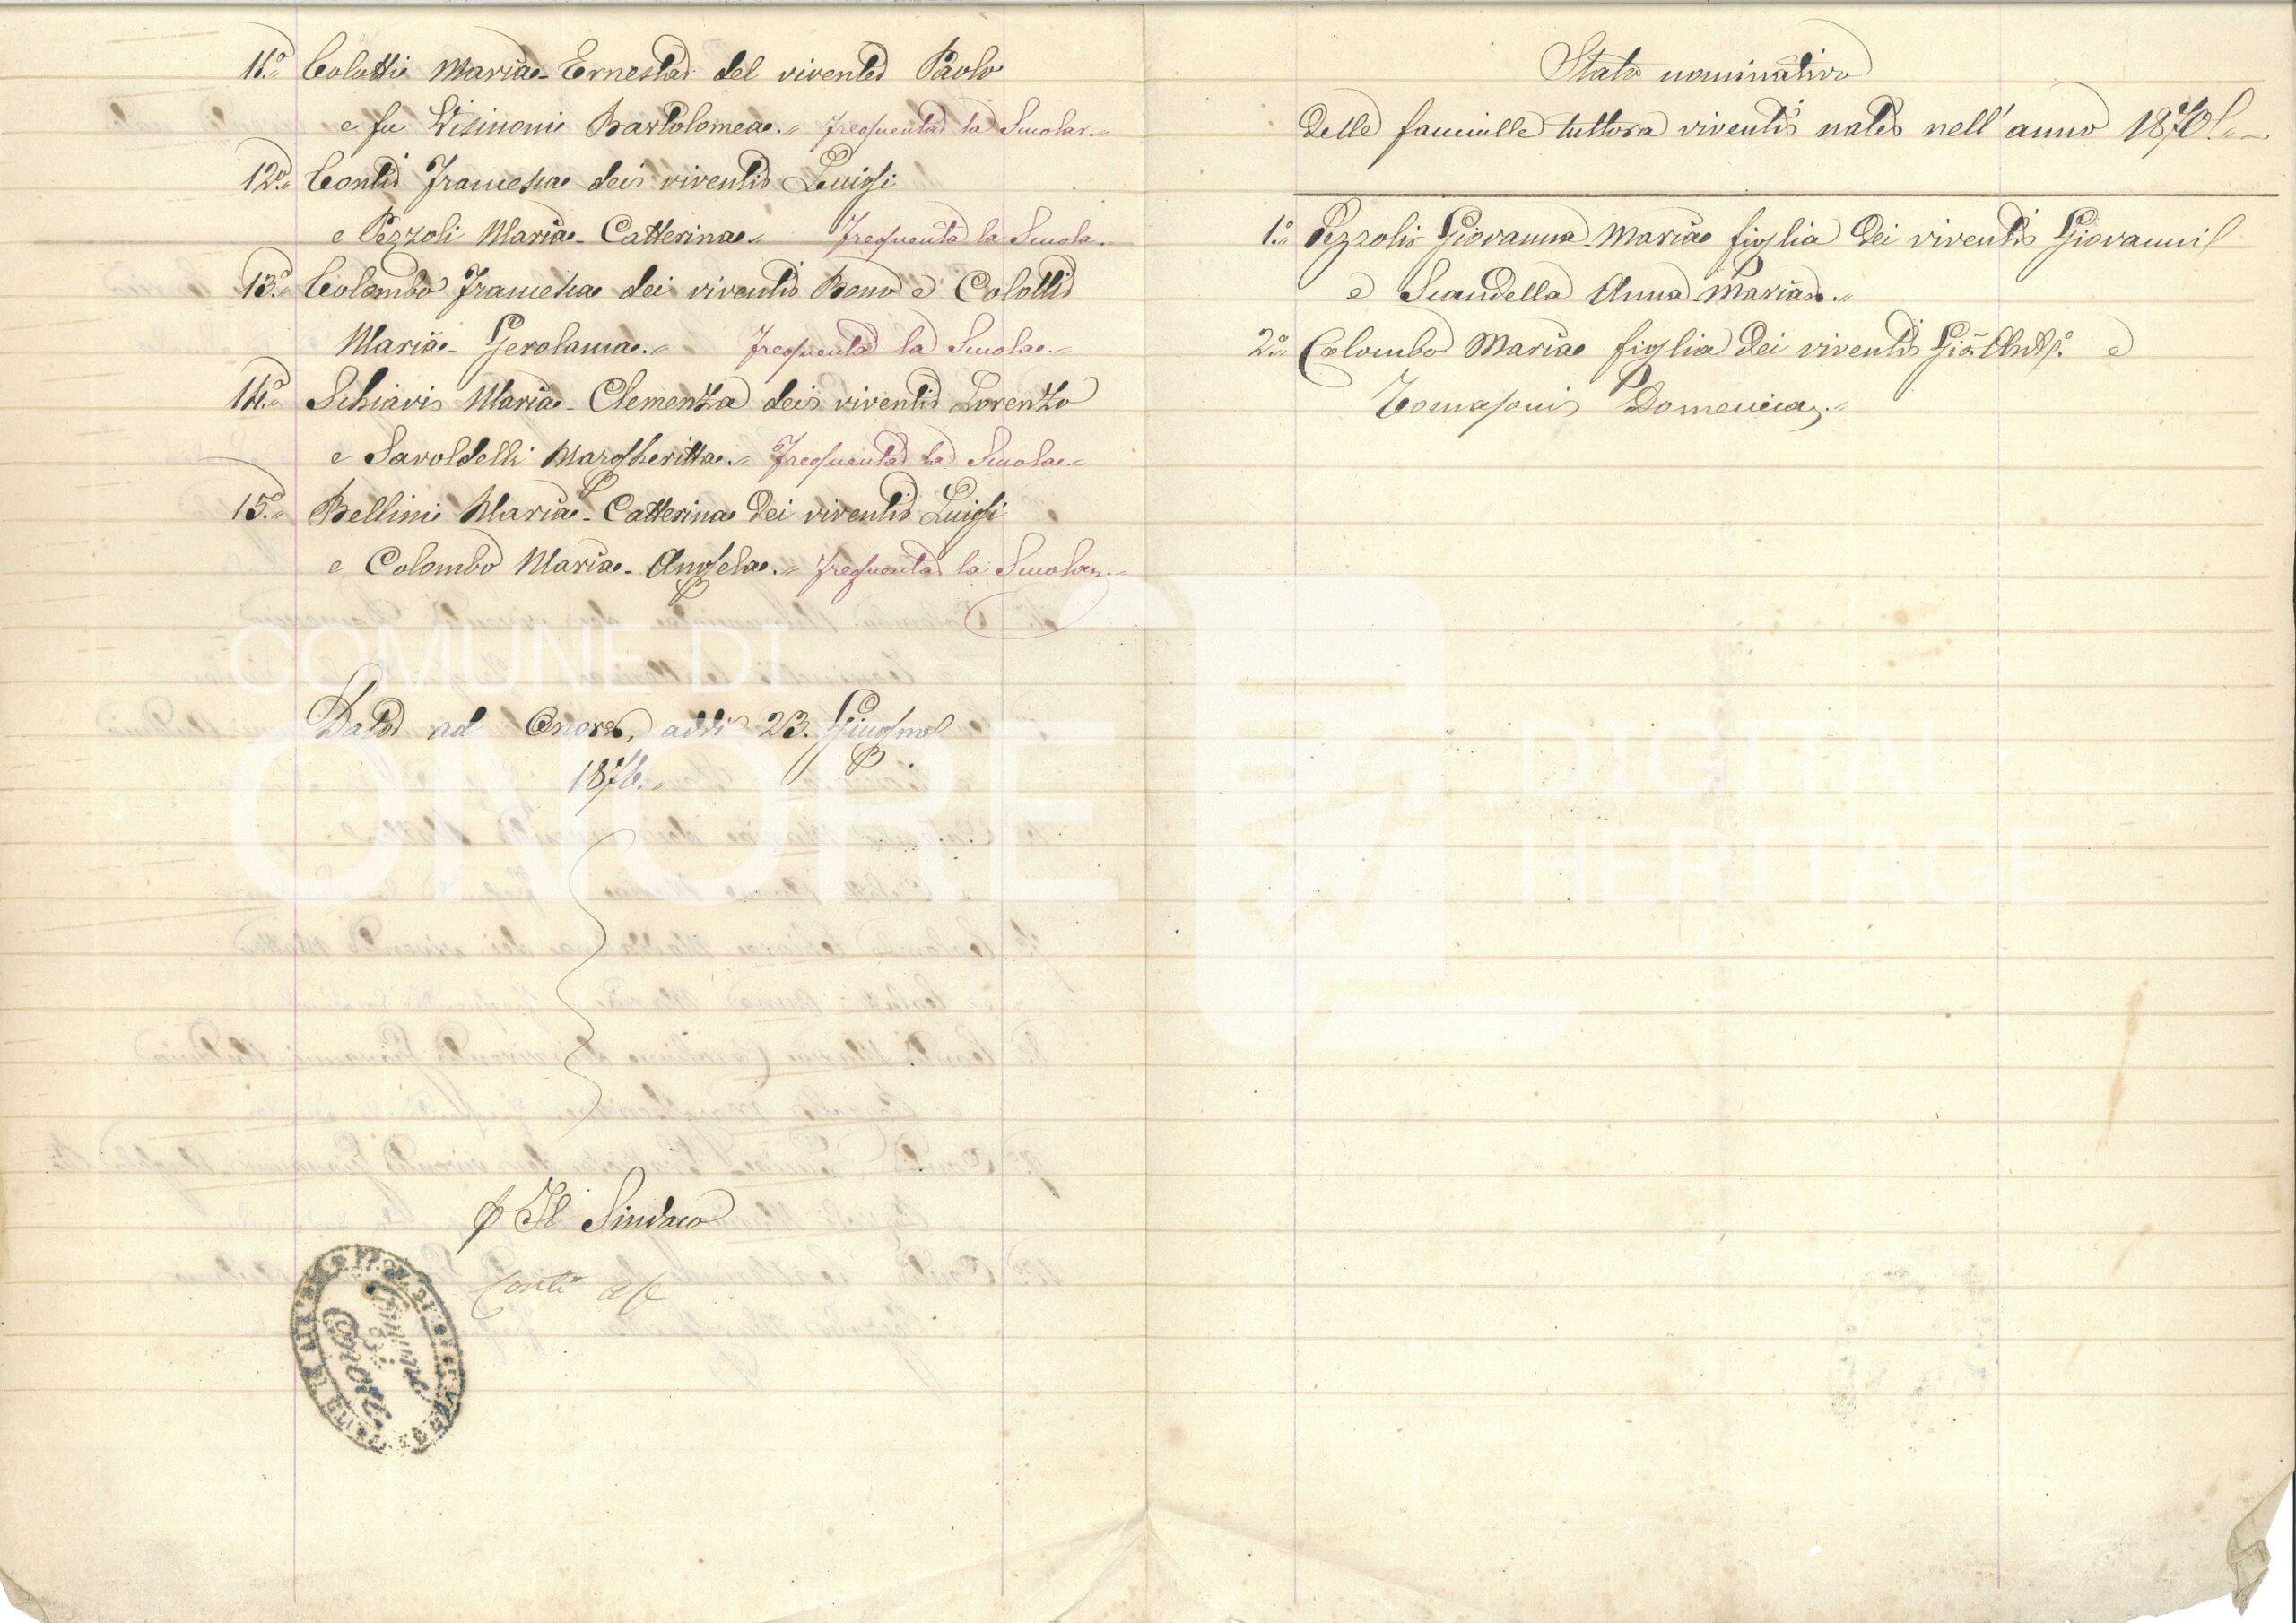 11.° Colotti Maria-Ernesta del vivente Paolo
e fu Visinoni Bartolomea. Frequenta la Scuola.
12.° Conti Francesca dei viventi Luigi
e Pezzoli Maria-Catterina Frequenta la Scuola.
13.° Colombo Francesca dei viventi Bono e Colotti
Maria-Gerolama. Frequenta la Scuola.
14.° Schiavi Maria-Clemenza dei viventi Lorenzo
e Savoldelli Margheritta. Frequenta la Scuola.
15.° Bellini Maria-Catterina dei viventi Luigi
e Colombo Maria-Angela. Frequenta la Scuola.
Dato ad Onore, addì 23. Giugno
1876.
Il Sindaco
Conti
Comune
di
Onore
Stato nominativo
delle fanciulle tuttora viventi nate nell'anno 1870.
1.° Pezzoli Giovanna-Maria figlia dei viventi Giovanni
e Scandella Anna-Maria.
2.° Colombo Maria figlia dei viventi Gio. Ant.° e
Tomasoni Domenica.
COMUNE DI
ONORE
DIGITAL
HERITAGE